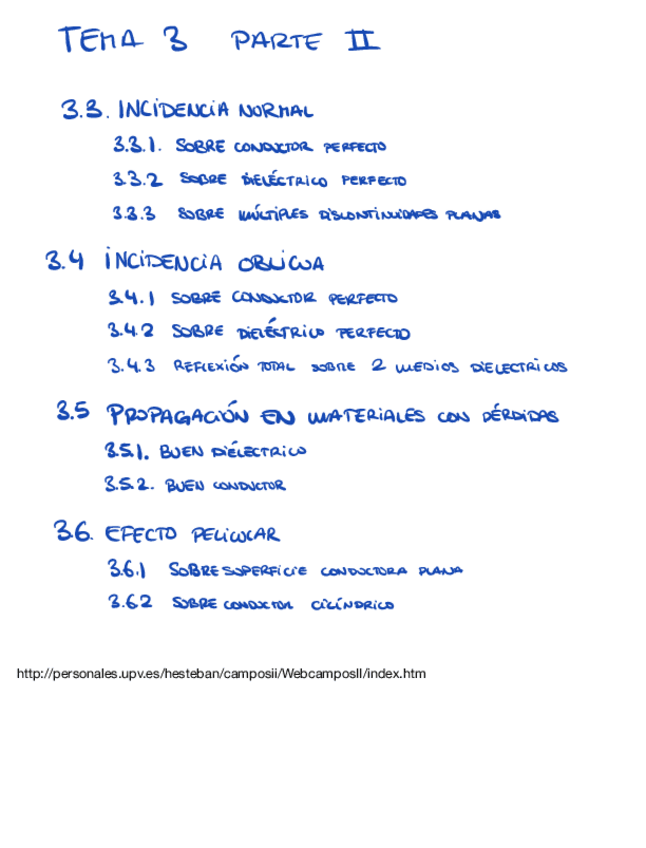 TEMA 3 PARTE II
3.3. INCIDENCIA NORMAL
3.3.1. SOBRE CONDUCTOR PERFECTO
3.3.2 SOBRE DIELÉCTRICO PERFECTO
3.3.3 SOBRE MÚLTIPLES DISCONTINUIDADES PLANAS
3.4 INCIDENCIA OBLICUA
3.4.1 SOBRE CONDUCTOR PERFECTO
3.4.2 SOBRE DIELÉCTRICO PERFECTO
3.4.3 REFLEXIÓN TOTAL SOBRE 2 MEDIOS DIELECTRICOS
3.5 PROPAGACIÓN EN MATERIALES CON PÉRDIDAS
3.5.1. BUEN DIÉLECTRICO
3.5.2. BUEN CONDUCTOR
3.6. EFECTO PELICULAR
3.6.1 SOBRE SUPERFICIE CONDUCTORA PLANA
3.6.2 SOBRE CONDUCTOR CILÍNDRICO
http://personales.upv.es/hesteban/camposii/WebcamposII/index.htm